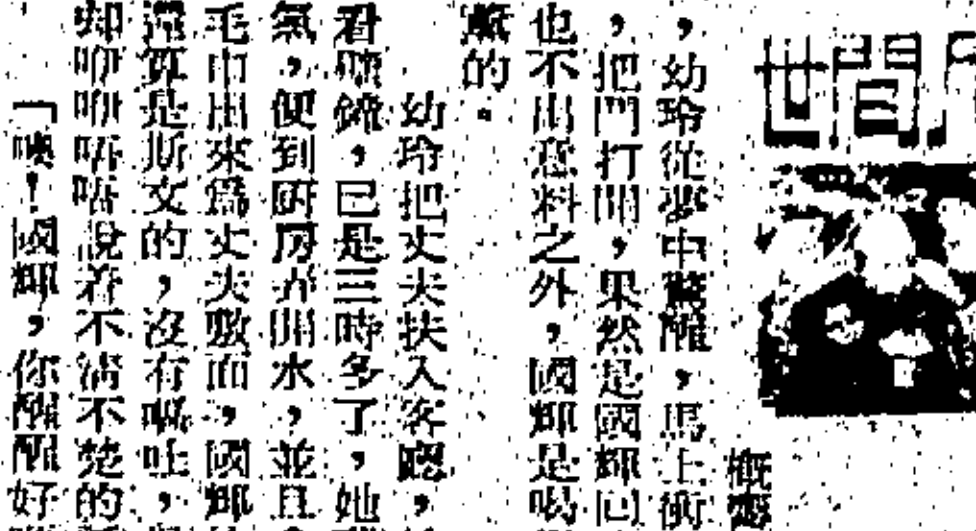 世間
，幼玲從夢中驚醒，馬上衝
，把門打開，果然是國輝回
也不出意料之外，國輝是喝
的。
幼玲把丈夫扶入客廳，
看壁鐘，已是三時多了，她
氣，便到廚房弄開水，並且
毛巾出來爲丈夫敷面，國輝
還算是斯文的，沒有嘔吐，
却咿咿唔唔說着不清不楚的
「噢！國輝，你醒醒好